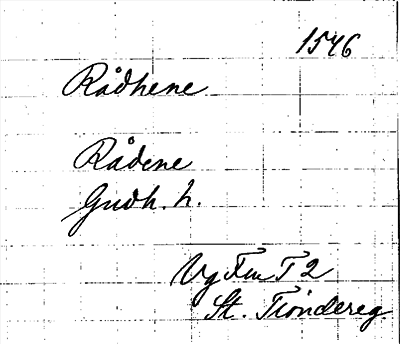 1546
Rådhene
Rådene
Gudh. h.
Vg Fru T 2
St. Tiondereg.